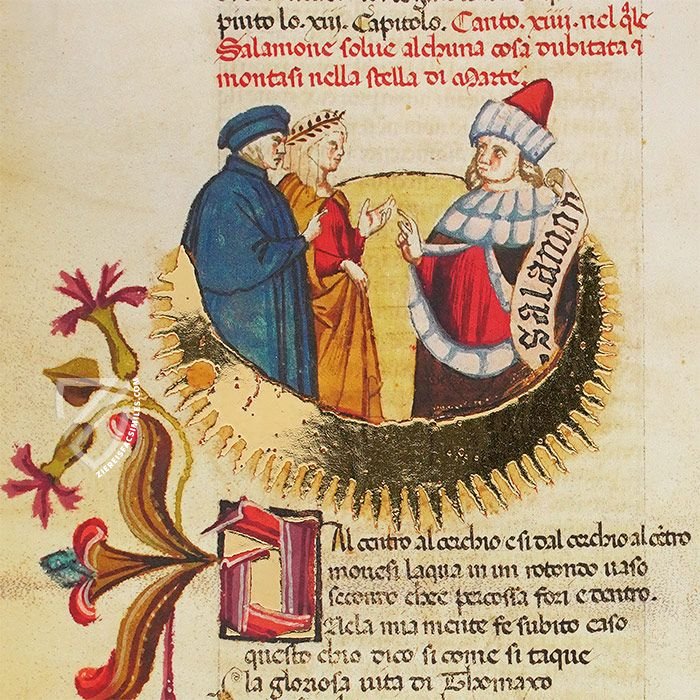 pinto lo. xiii. Capitolo. Canto. xiiii. nel q̃le
Salamone solue alchuna cosa dubitata ⁊
montasi nella stella di Marte.
.salamon
ZIEREISFACSIMILES.COM
Al centro al cerchio e si dal cerchio al cẽtro
mouesi laqua in un rotondo uaso
secondo chee percossa fori e dentro.
Nela mia mente fe subito caso
questo chio dico si come si taque
la gloriosa uita di Thomaxo